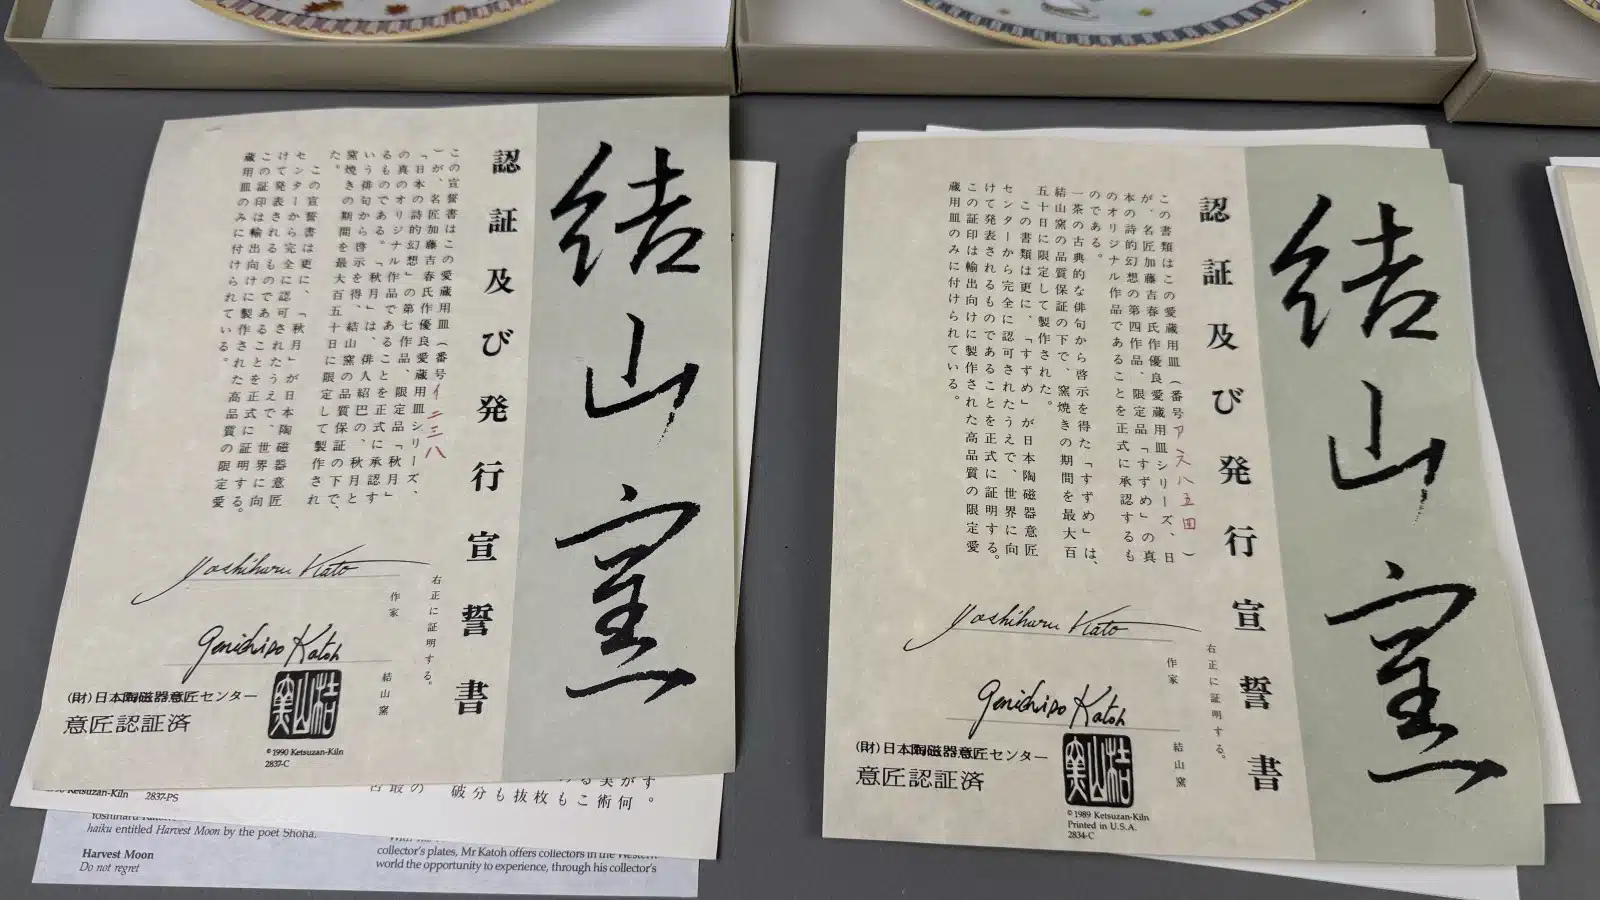 結山窯
認証及び発行宣誓書
この宣誓書はこの愛蔵用皿(番号イ二三八
)が、名匠加藤吉春氏作優良愛蔵用皿シリーズ、
「日本の詩的幻想」の第七作品、限定品「秋月」
の真のオリジナル作品であることを正式に承認す
るものである。「秋月」は、俳人紹巴の、秋月と
いう俳句から啓示を得、結山窯の品質保証の下で、
窯焼きの期間を最大百五十日に限定して製作され
た。
この宣誓書は更に、「秋月」が日本陶磁器意匠
センターから完全に認可されたうえで、世界に向
けて発表されるものであることを正式に証明する。
この証印は輸出向けに製作された高品質の限定愛
蔵用皿のみに付けられている。
右正に証明する。
Yoshiharu Kato
作家
Genichiro Katoh
結山窯
(財)日本陶磁器意匠センター
意匠認証済
結山窯
©1990 Ketsuzan-Kiln
2837-C
Ketsuzan-Kiln 2837-PS
haiku entitled Harvest Moon by the poet Shoha.
Harvest Moon
Do not regret
collector's plates, Mr Katoh offers collectors in the Western
world the opportunity to experience, through his collector's
結山窯
認証及び発行宣誓書
この書類はこの愛蔵用皿(番号ア六八五四)
が、名匠加藤吉春氏作優良愛蔵用皿シリーズ、日
本の詩的幻想の第四作品、限定品「すずめ」の真
のオリジナル作品であることを正式に承認するも
のである。
一茶の古典的な俳句から啓示を得た「すずめ」は、
結山窯の品質保証の下で、窯焼きの期間を最大百
五十日に限定して製作された。
この書類は更に、「すずめ」が日本陶磁器意匠
センターから完全に認可されたうえで、世界に向
けて発表されるものであることを正式に証明する。
この証印は輸出向けに製作された高品質の限定愛
蔵用皿のみに付けられている。
右正に証明する。
Yoshiharu Kato
作家
Genichiro Katoh
結山窯
(財)日本陶磁器意匠センター
意匠認証済
結山窯
©1989 Ketsuzan-Kiln
Printed in U.S.A.
2834-C